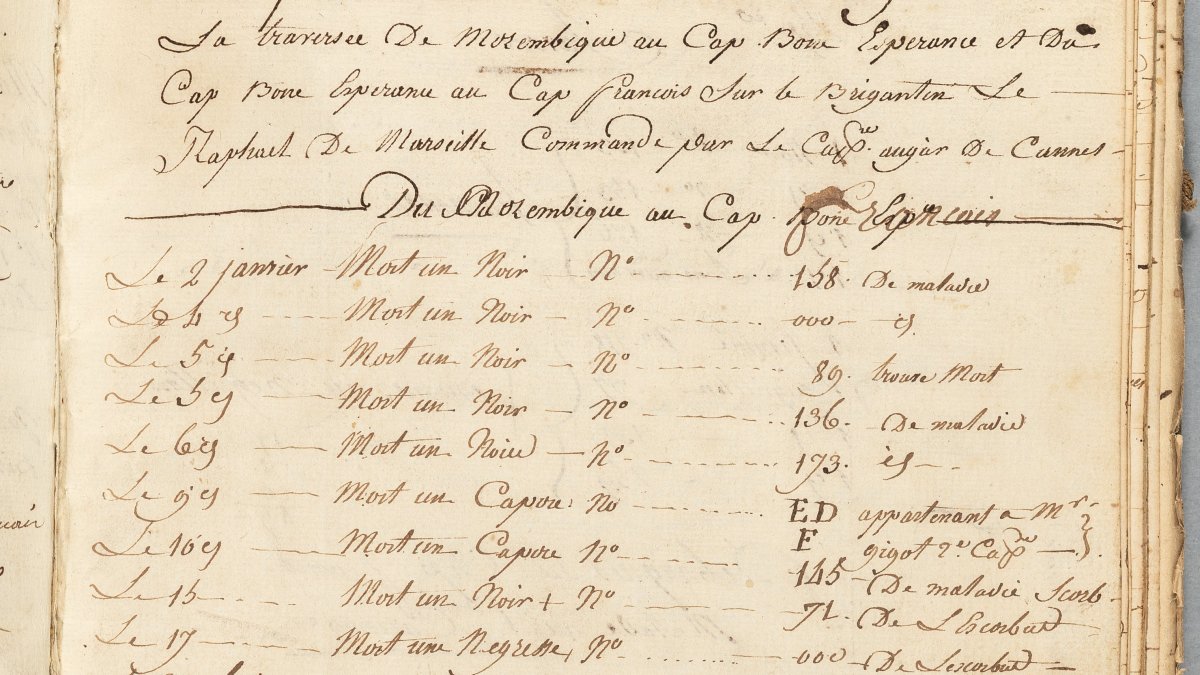 La traversée De Mozembique au Cap Bone Esperance et Du
Cap Bone Esperance au Cap francois Sur le Brigantin Le
Raphael De Marseille Commande par Le Capne augier De Cannes
Du Mozembique au Cap Bone Espce
Le 2 janvier Mort un Noir No 158. De maladie
Le 4 id Mort un Noir No 000 id
Le 5 id Mort un Noir No 89. trouve Mort
Le 5 id Mort un Noir No 136. De maladie
Le 6 id Mort un Noir No 173. id
Le 9 id Mort un Capore No ED appartenant a Mr
F gigot 2e Capne
Le 10 id Mort un Capore No 145 De maladie Scorb
Le 15 Mort un Noir + No 71. De L'Escorbut
Le 17 Mort une Negresse, No 000 De Lescorbut